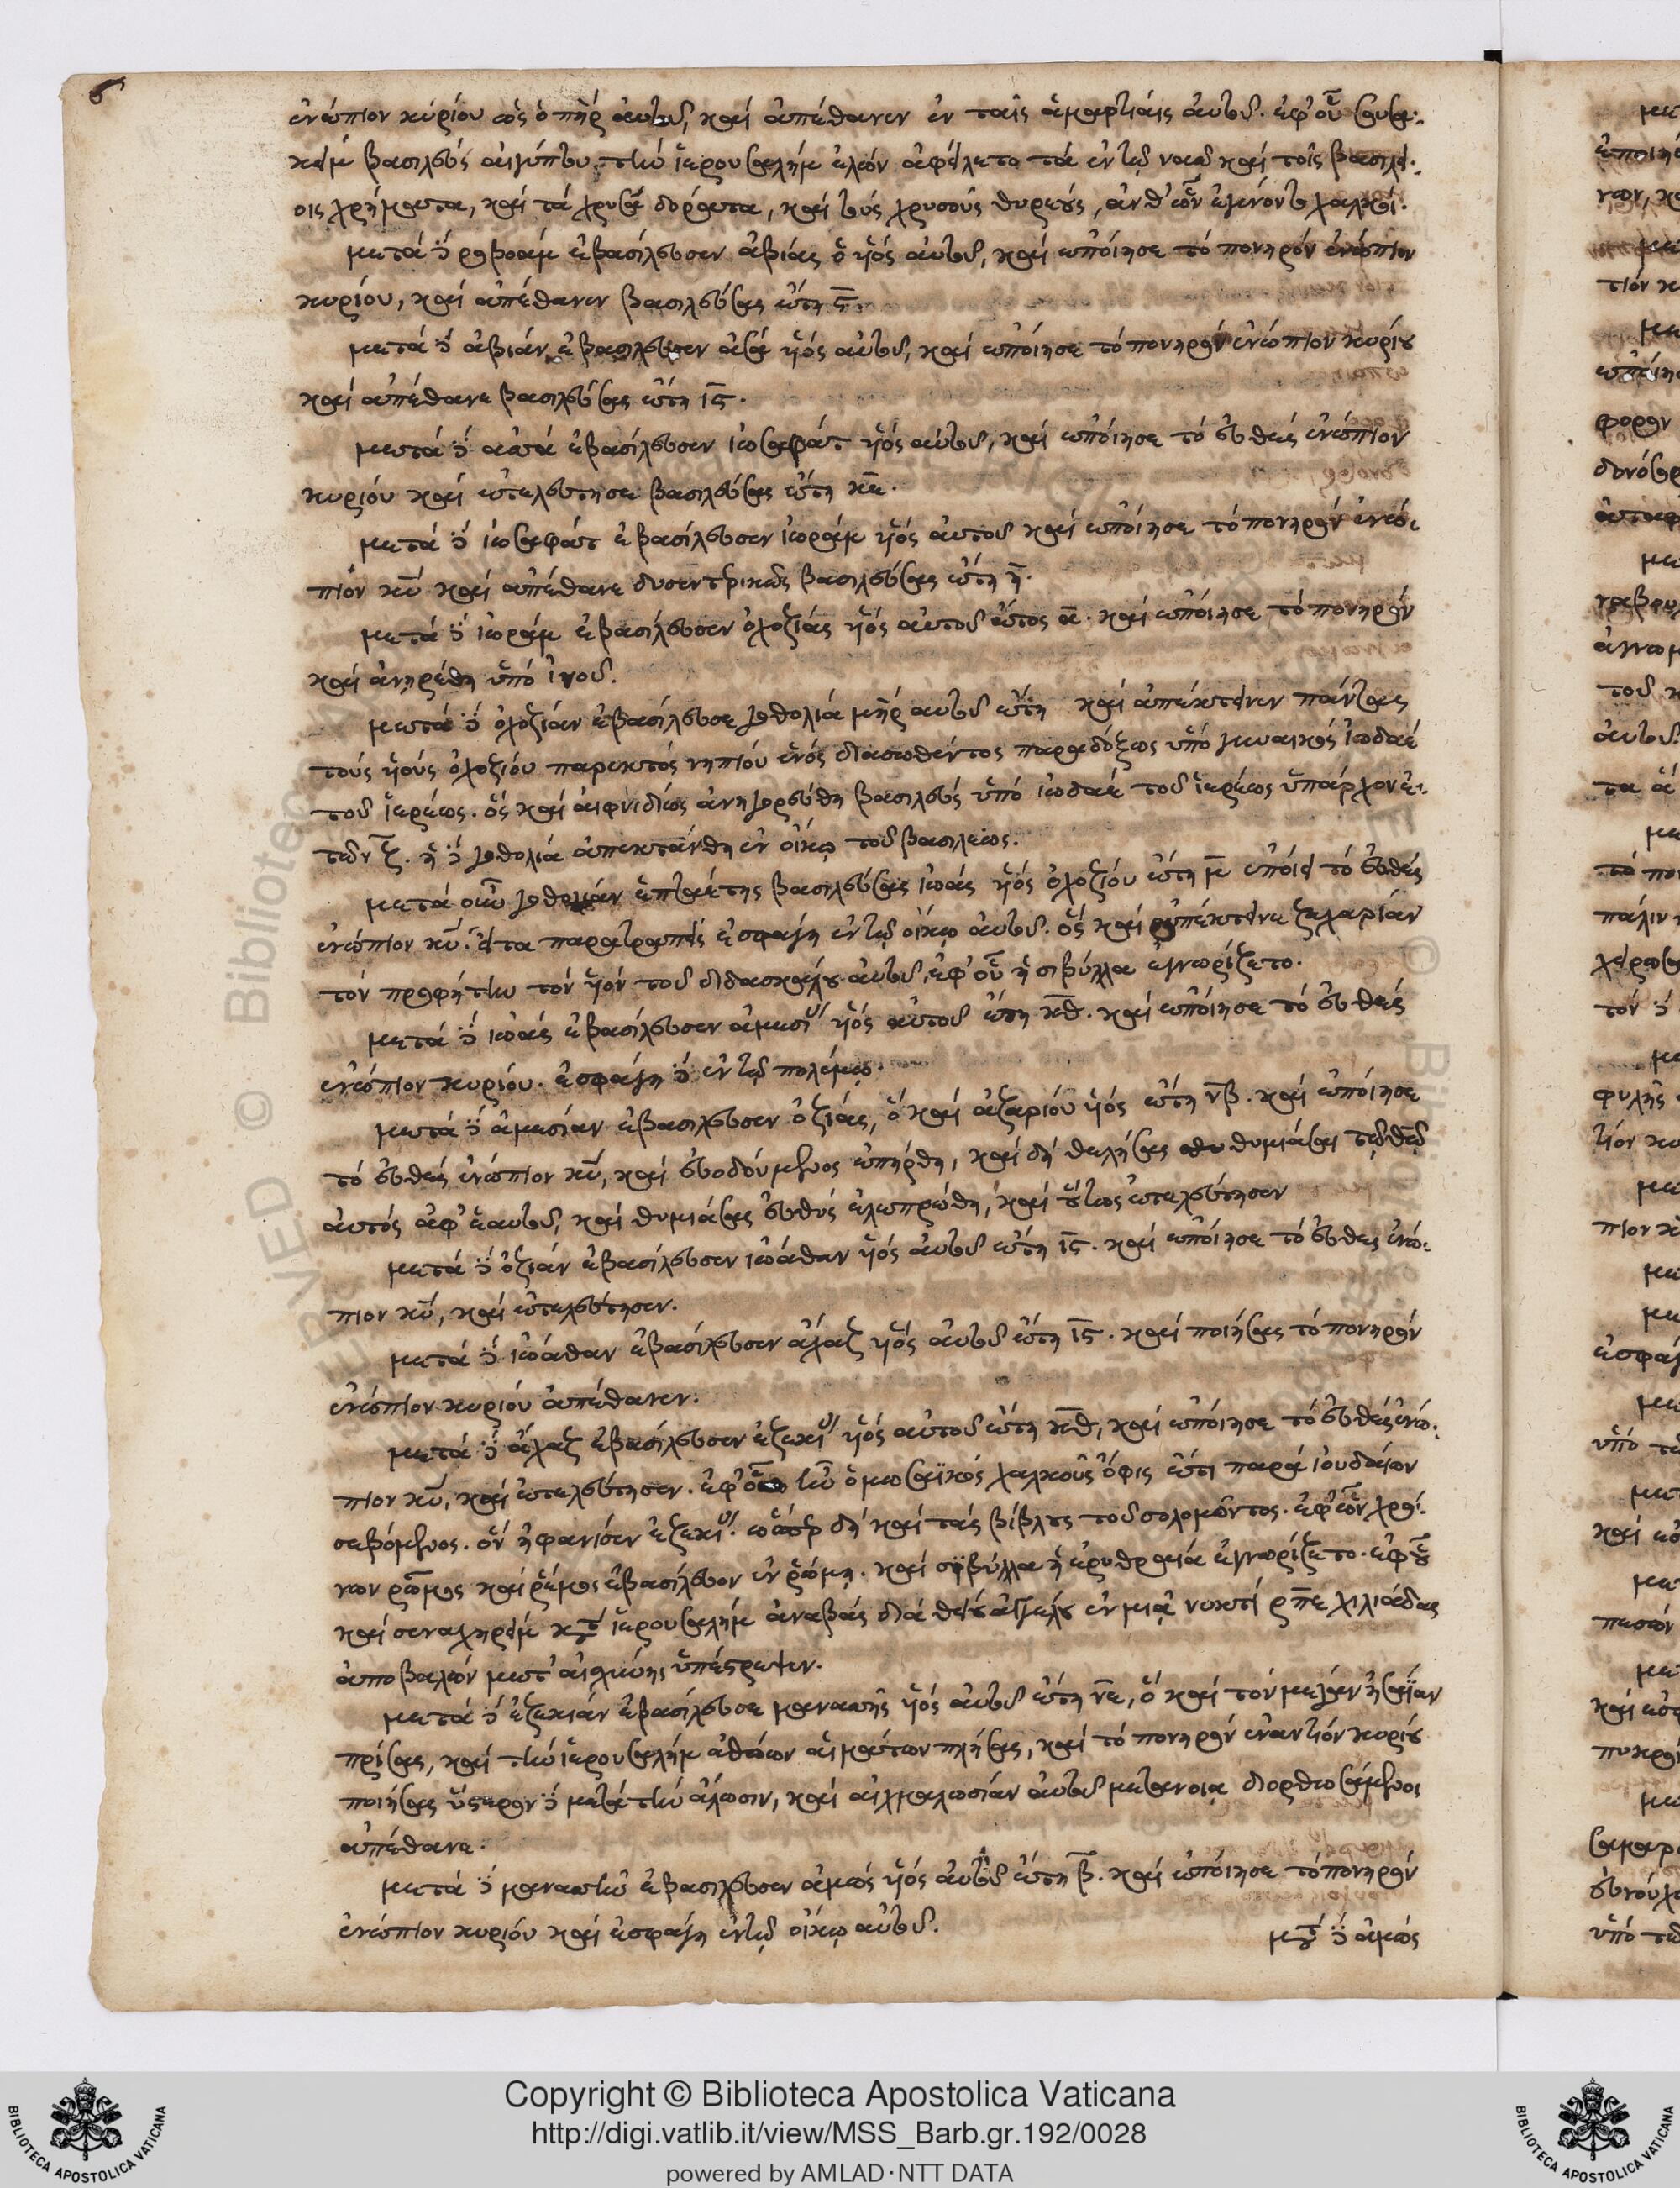 ἐνώπιον κυρίου ὡς ὁ πηρ αὐτοῦ, καὶ ἀπέθανεν ἐν ταῖς ἁμαρτίαις αὐτοῦ. ἐφ' οὗ σουσα-
κεὶμ βασιλεὺς αἰγύπτου τὴν ἱερουσαλὴμ ἑλὼν ἀφείλετο τὰ ἐν τῷ ναῷ καὶ τοῖς βασιλεί-
οις χρήματα, καὶ τὰ χρυσᾶ δόρατα, καὶ τοὺς χρυσοῦς θυρεοὺς, ἀνθ' ὧν ἐγένοντο χαλκοί.
μετὰ δὲ ροβοὰμ ἐβασίλευσεν ἀβιὰς ὁ υἱὸς αὐτοῦ, καὶ ἐποίησε τὸ πονηρὸν ἐνώπιον
κυρίου, καὶ ἀπέθανεν βασιλεύσας ἔτη ϛ.
μετὰ δὲ ἀβιὰν ἐβασίλευσεν ἀσὰ υἱὸς αὐτοῦ, καὶ ἐποίησε τὸ πονηρὸν ἐνώπιον κυρίου
καὶ ἀπέθανε βασιλεύσας ἔτη ιϛ.
μετὰ δὲ ἀσὰ ἐβασίλευσεν ἰωσαφὰτ υἱὸς αὐτοῦ, καὶ ἐποίησε τὸ εὐθὲς ἐνώπιον
κυρίου καὶ ἐτελεύτησε βασιλεύσας ἔτη κε.
μετὰ δὲ ἰωσαφὰτ ἐβασίλευσεν ἰωρὰμ υἱὸς αὐτοῦ καὶ ἐποίησε τὸ πονηρὸν ἐνώ-
πιον κυ καὶ ἀπέθανε δυσεντρικῶς βασιλεύσας ἔτη η.
μετὰ δὲ ἰωρὰμ ἐβασίλευσεν ὀχοζίας υἱὸς αὐτοῦ ἔτος α. καὶ ἐποίησε τὸ πονηρὸν
καὶ ἀνηρέθη ὑπὸ ἰνοῦ.
μετὰ δὲ ὀχοζίαν ἐβασίλευσε γοθολία μηρ αὐτοῦ ἔτη καὶ ἀπέκτεινεν πάντας
τοὺς υἱοὺς ὀχοζίου παρεκτὸς νηπίου ἑνὸς διασωθέντος παραδόξως ὑπὸ γυναικὸς ἰωδαὲ
τοῦ ἱερέως. ὃς καὶ αἰφνιδίως ἀνηγορεύθη βασιλεὺς ὑπὸ ἰωδαὲ τοῦ ἱερέως ὑπάρχων ἐ-
τῶν ζ. ἡ δὲ γοθολία ἀπεκτάνθη ἐν οἴκῳ τοῦ βασιλέως.
μετὰ οὖν γοθολίαν ἑπταέτης βασιλεύσας ἰωὰς υἱὸς ὀχοζίου ἔτη μ ἐποίει τὸ εὐθὲς
ἐνώπιον κυ. εἶτα παρατραπεὶς ἐσφάγη ἐν τῷ οἴκῳ αὐτοῦ. ὃς καὶ ἀπέκτεινε ζαχαρίαν
τὸν προφήτην τὸν υἱὸν τοῦ διδασκάλου αὐτοῦ, ἐφ' οὗ ἡ σιβύλλα ἐγνωρίζετο.
μετὰ δὲ ἰωὰς ἐβασίλευσεν ἀμεσί υἱὸς αὐτοῦ ἔτη κθ. καὶ ἐποίησε τὸ εὐθὲς
ἐνώπιον κυρίου. ἐσφάγη δὲ ἐν τῷ πολέμῳ.
μετὰ δὲ ἀμεσίαν ἐβασίλευσεν ὀζίας, ὁ καὶ ἀζαρίου υἱὸς ἔτη νβ. καὶ ἐποίησε
τὸ εὐθὲς ἐνώπιον κυ, καὶ εὐοδούμενος ἐπήρθη, καὶ δὴ θελήσας θυμιάσαι τῷ θῷ
αὐτὸς ἀφ' ἑαυτοῦ, καὶ θυμιάσας εὐθὺς ἐλεπρώθη, καὶ οὕτως ἐτελεύτησεν
μετὰ δὲ ὀζίαν ἐβασίλευσεν ἰωάθαν υἱὸς αὐτοῦ ἔτη ιϛ. καὶ ἐποίησε τὸ εὐθὲς ἐνώ-
πιον κυ, καὶ ἐτελεύτησεν.
μετὰ δὲ ἰωάθαν ἐβασίλευσεν ἄχαζ υἱὸς αὐτοῦ ἔτη ιϛ. καὶ ποιήσας τὸ πονηρὸν
ἐνώπιον κυρίου ἀπέθανεν.
μετὰ δὲ ἄχαζ ἐβασίλευσεν ἐζεκί υἱὸς αὐτοῦ ἔτη κθ, καὶ ἐποίησε τὸ εὐθὲς ἐνώ-
πιον κυ, καὶ ἐτελεύτησεν. ἐφ' οὗ ἦν ὁ μωσαϊκὸς χαλκοῦς ὄφις ἔτι παρὰ ἰουδαίων
σεβόμενος. ὃν ἠφάνισεν ἐζεκί. ὥσπερ δὴ καὶ τὰς βίβλους τοῦ σολομῶντος. ἐφ' ὧν χρό-
νων ρῶμος καὶ ρῆμος ἐβασίλευον ἐν ῥώμῃ. καὶ σιβύλλα ἡ ἐρυθραία ἐγνωρίζετο. ἐφ' οὗ
καὶ σεναχηρεὶμ κατὰ ἱερουσαλὴμ ἀναβὰς διὰ θείου ἀγγέλου ἐν μιᾷ νυκτὶ ρπε χιλιάδας
ἀποβαλὼν μετ' αἰσχύνης ὑπέστρεψεν.
μετὰ δὲ ἐζεκίαν ἐβασίλευσε μανασῆς υἱὸς αὐτοῦ ἔτη νε, ὁ καὶ τὸν μέγαν ἠσαΐαν
πρίσας, καὶ τὴν ἱερουσαλὴμ ἀθώων αἱμάτων πλήσας, καὶ τὸ πονηρὸν ἐναντίον κυρίου
ποιήσας ὕστερον δὲ μετὰ τὴν ἅλωσιν, καὶ αἰχμαλωσίαν αὐτοῦ μετανοίᾳ διορθωσάμενος
ἀπέθανε.
μετὰ δὲ μανασῆν ἐβασίλευσεν ἀμὼς υἱὸς αὐτοῦ ἔτη β. καὶ ἐποίησε τὸ πονηρὸν
ἐνώπιον κυρίου καὶ ἐσφάγη ἐν τῷ οἴκῳ αὐτοῦ.
μετὰ δὲ ἀμὼς
Copyright © Biblioteca Apostolica Vaticana
http://digi.vatlib.it/view/MSS_Barb.gr.192/0028
powered by AMLAD·NTT DATA